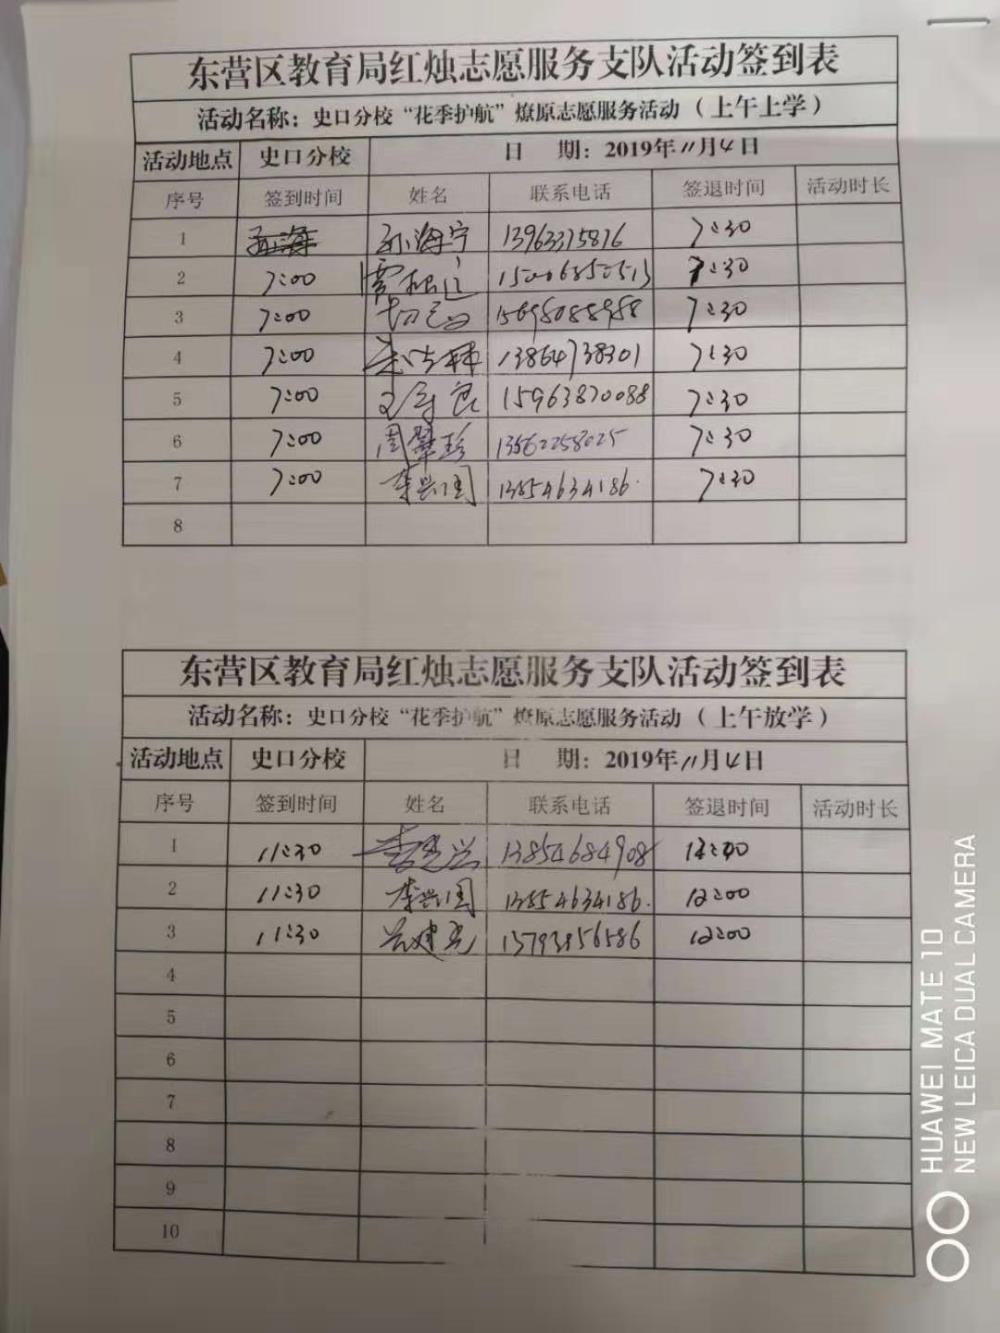 东营区教育局红烛志愿服务支队活动签到表
活动名称：史口分校“花季护航”燎原志愿服务活动（上午上学）
活动地点 史口分校 日 期：2019年11月4日
序号 签到时间 姓名 联系电话 签退时间 活动时长
1 孙海宁 13963315816 7:30
2 7:00 7:30
3 7:00 15698088988 7:30
4 7:00 13864738301 7:30
5 7:00 15963870088 7:30
6 7:00 周翠珍 13562258025 7:30
7 7:00 李兴国 13854634186 7:30
8
东营区教育局红烛志愿服务支队活动签到表
活动名称：史口分校“花季护航”燎原志愿服务活动（上午放学）
活动地点 史口分校 日 期：2019年11月4日
序号 签到时间 姓名 联系电话 签退时间 活动时长
1 11:30 13854684908 12:00
2 11:30 李兴国 13854634186. 12:00
3 11:30 13793956586 12:00
4
5
6
7
8
9
10
HUAWEI MATE 10
NEW LEICA DUAL CAMERA